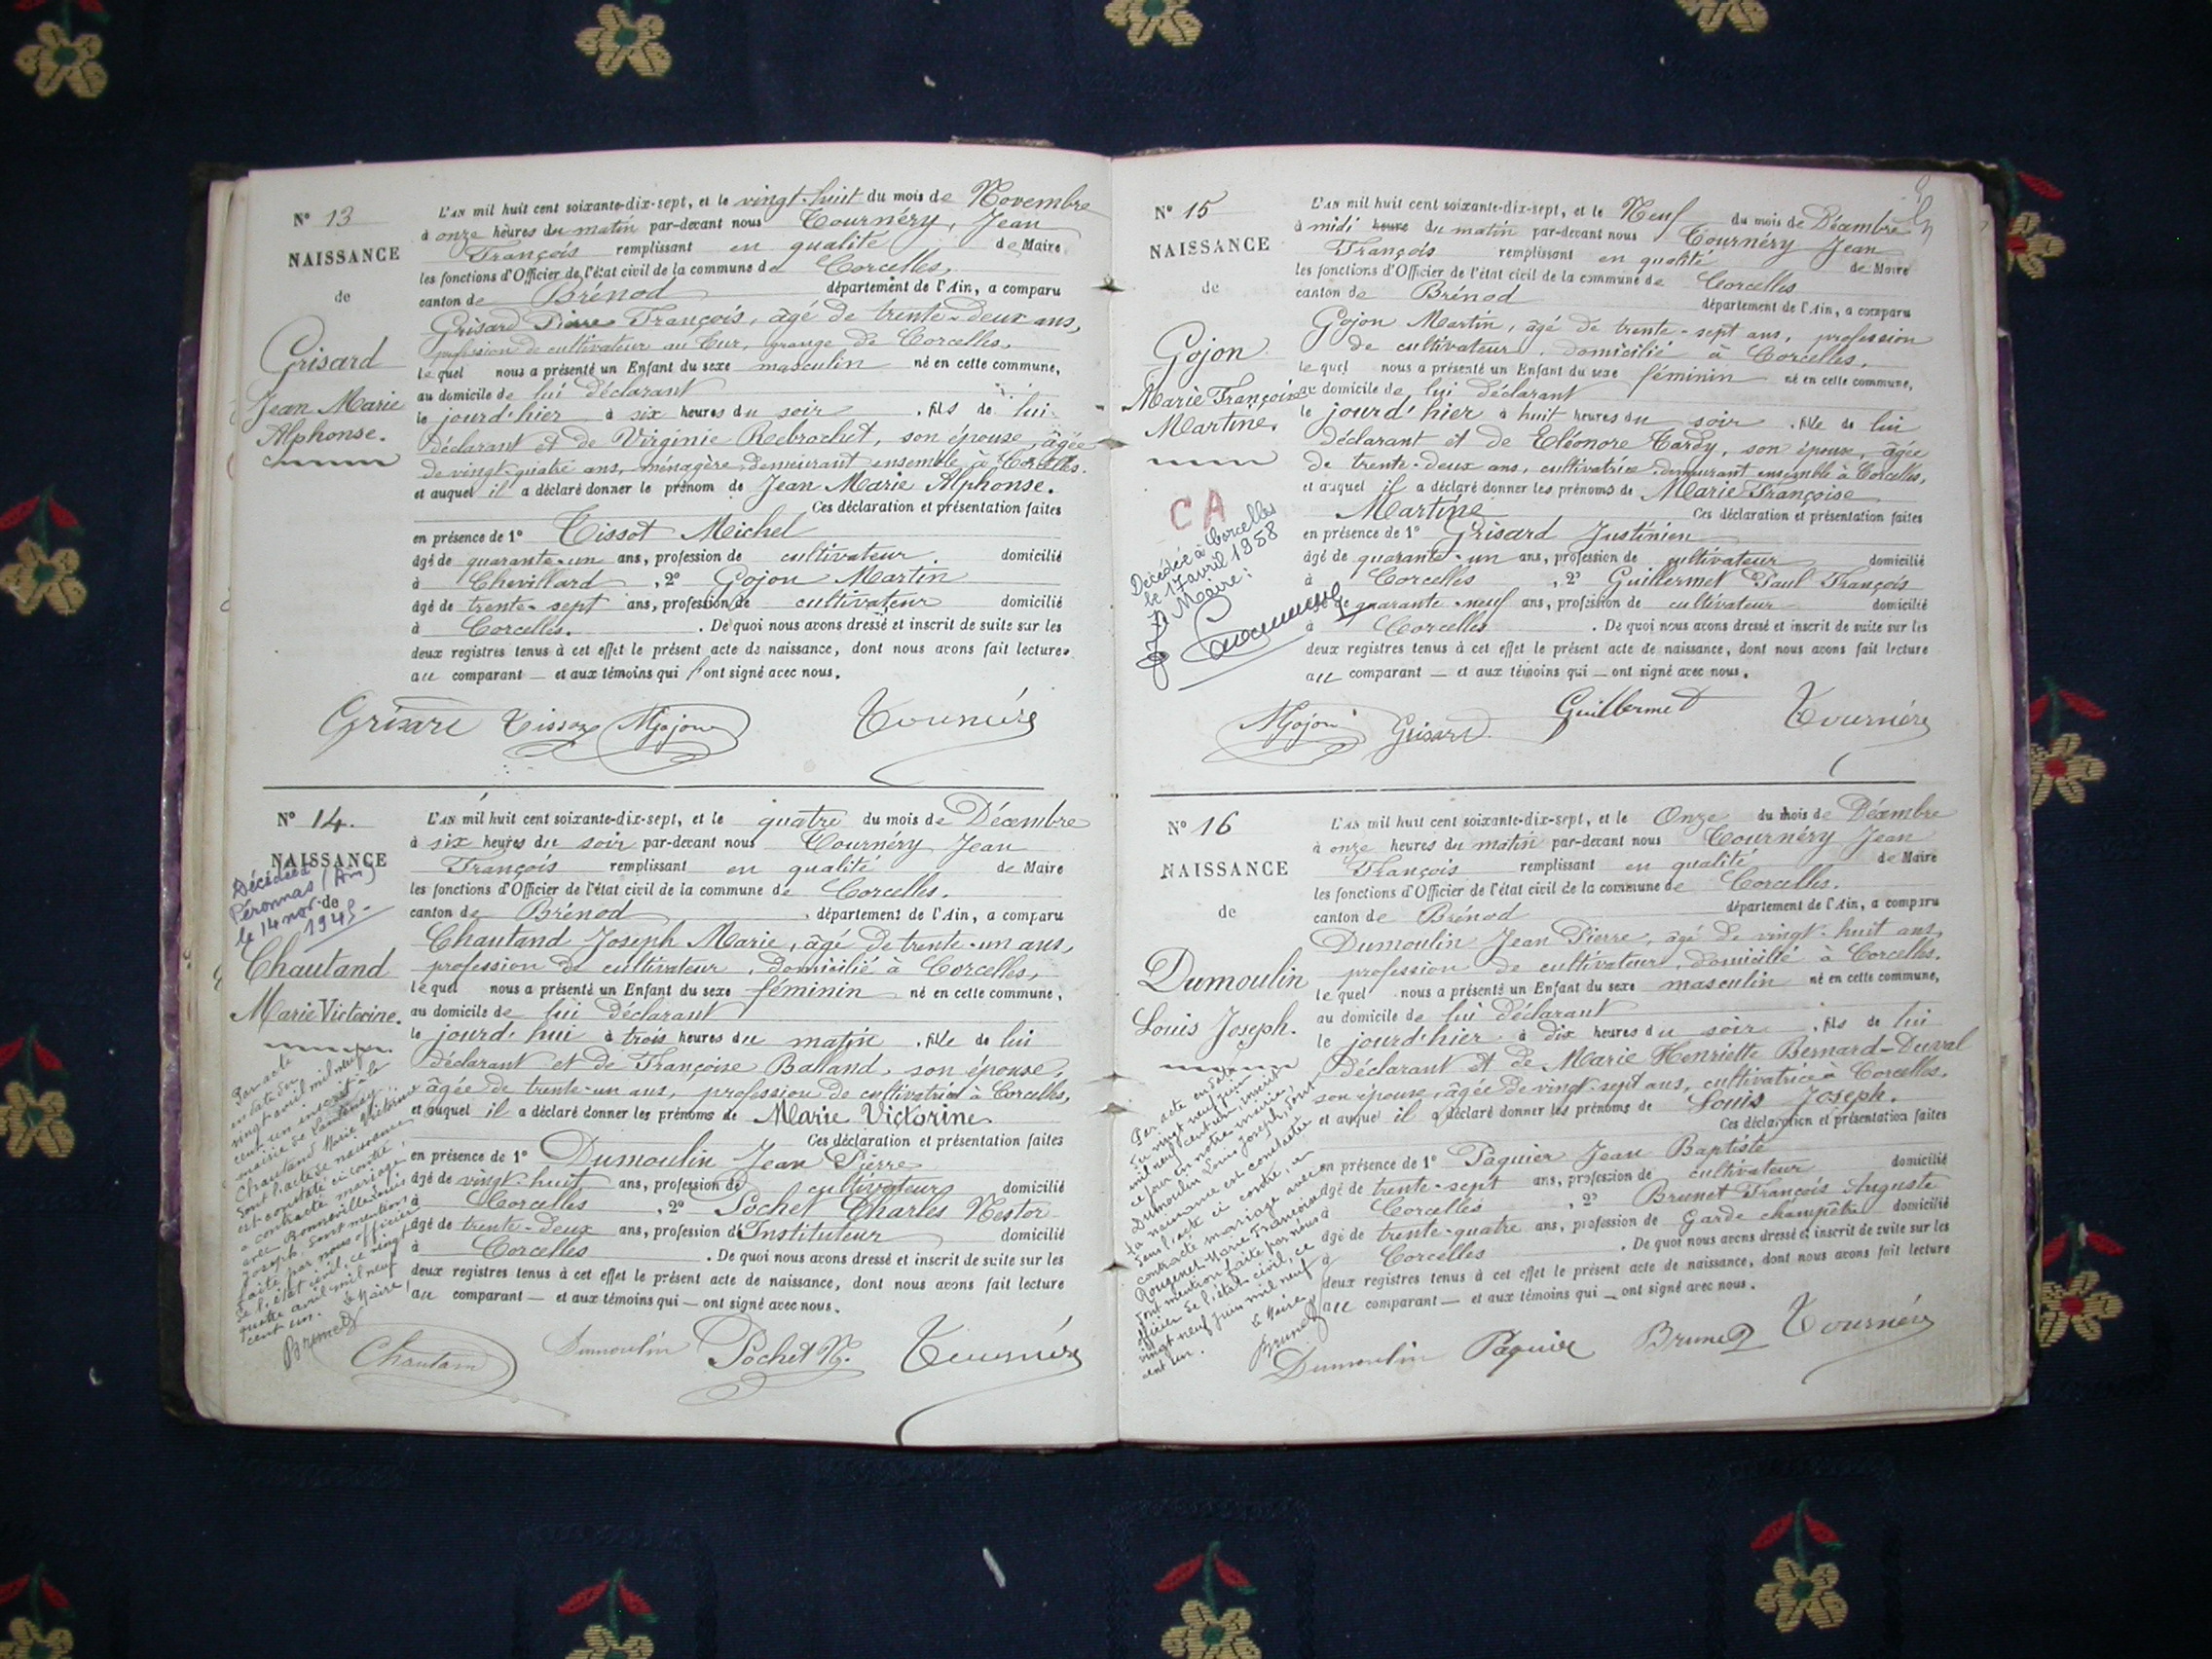 N° 13
NAISSANCE
de
Grisard
Jean Marie
Alphonse.
L'AN mil huit cent soixante-dix-sept, et le vingt-huit du mois de Novembre
à onze heures du matin par-devant nous Tournéry, Jean
François remplissant en qualité de Maire
les fonctions d'Officier de l'état civil de la commune de Corcelles,
canton de Brénod département de l'Ain, a comparu
Grisard Pierre François, âgé de trente-deux ans,
profession de cultivateur au Cur, grange de Corcelles,
lequel nous a présenté un Enfant du sexe masculin né en cette commune,
au domicile de lui déclarant
le jourd'hier à six heures du soir, fils de lui
déclarant et de Virginie Rebrochet, son épouse, âgée
de vingt-quatre ans, ménagère demeurant ensemble à Corcelles.
et auquel il a déclaré donner le prénom de Jean Marie Alphonse.
Ces déclaration et présentation faites
en présence de 1° Tissot Michel
âgé de quarante-un ans, profession de cultivateur domicilié
à Chevillard, 2° Gojon Martin
âgé de trente-sept ans, profession de cultivateur domicilié
à Corcelles. De quoi nous avons dressé et inscrit de suite sur les
deux registres tenus à cet effet le présent acte de naissance, dont nous avons fait lecture
au comparant — et aux témoins qui ont signé avec nous.
Grisard Tissot MGojon Tournéry
N° 14.
NAISSANCE
de
Décédée à
Péronnas (Ain)
le 14 nov.
1945.
Chautand
Marie Victorine.
Par acte
en date du
vingt avril mil neuf
cent un inscrit à la
mairie de Lantenay
Chautand Marie Victorine
dont l'acte de naissance
est constaté ci contre,
a contracté mariage
avec Bonneville Louis
Joseph. Dont mention
faite par nous officier
de l'état civil, ce vingt
quatre avril mil neuf
cent un. Le Maire,
Brunet
L'AN mil huit cent soixante-dix-sept, et le quatre du mois de Décembre
à six heures du soir par-devant nous Tournéry Jean
François remplissant en qualité de Maire
les fonctions d'Officier de l'état civil de la commune de Corcelles.
canton de Brénod, département de l'Ain, a comparu
Chautand Joseph Marie, âgé de trente-un ans,
profession de cultivateur, domicilié à Corcelles,
lequel nous a présenté un Enfant du sexe féminin né en cette commune,
au domicile de lui déclarant
le jourd'hui à trois heures du matin, fille de lui
déclarant et de Françoise Balland, son épouse,
âgée de trente-un ans, profession de cultivatrice à Corcelles,
et auquel il a déclaré donner les prénoms de Marie Victorine
Ces déclaration et présentation faites
en présence de 1° Dumoulin Jean Pierre
âgé de vingt-huit ans, profession de cultivateur domicilié
à Corcelles, 2° Pochet Charles Nestor
âgé de trente-deux ans, profession d'Instituteur domicilié
à Corcelles. De quoi nous avons dressé et inscrit de suite sur les
deux registres tenus à cet effet le présent acte de naissance, dont nous avons fait lecture
au comparant — et aux témoins qui — ont signé avec nous.
Chautand Dumoulin Pochet N. Tournéry
N° 15
NAISSANCE
de
Gojon
Marie Françoise
Martine.
CA
Décédée à Corcelles
le 17 avril 1958
Le Maire:
L'AN mil huit cent soixante-dix-sept, et le Neuf du mois de Décembre
à midi heure du matin par-devant nous Tournéry Jean
François remplissant en qualité de Maire
les fonctions d'Officier de l'état civil de la commune de Corcelles
canton de Brénod département de l'Ain, a comparu
Gojon Martin, âgé de trente-sept ans, profession
de cultivateur, domicilié à Corcelles,
lequel nous a présenté un Enfant du sexe féminin né en cette commune,
au domicile de lui déclarant
le jourd'hier à huit heures du soir, fille de lui
déclarant et de Eléonore Tardy, son épouse, âgée
de trente-deux ans, cultivatrice demeurant ensemble à Corcelles,
et auquel il a déclaré donner les prénoms de Marie Françoise
Martine Ces déclaration et présentation faites
en présence de 1° Grisard Justinien
âgé de quarante-un ans, profession de cultivateur domicilié
à Corcelles, 2° Guillermet Paul François
âgé de quarante-neuf ans, profession de cultivateur domicilié
à Corcelles. De quoi nous avons dressé et inscrit de suite sur les
deux registres tenus à cet effet le présent acte de naissance, dont nous avons fait lecture
au comparant — et aux témoins qui — ont signé avec nous.
MGojon Grisard Guillermet Tournéry
N° 16
NAISSANCE
de
Dumoulin
Louis Joseph.
Par acte en date
du vingt neuf juin
mil neuf cent un, inscrit
ce jour en notre mairie,
Dumoulin Louis Joseph, dont
la naissance est constatée
dans l'acte ci contre, a
contracté mariage avec
Rougemet Marie Françoise
dont mention faite par nous
officier de l'état civil, ce
vingt neuf juin mil neuf
cent un. Le Maire,
Brunet
L'AN mil huit cent soixante-dix-sept, et le Onze du mois de Décembre
à onze heures du matin par-devant nous Tournéry Jean
François remplissant en qualité de Maire
les fonctions d'Officier de l'état civil de la commune de Corcelles.
canton de Brénod département de l'Ain, a comparu
Dumoulin Jean Pierre, âgé de vingt-huit ans,
profession de cultivateur, domicilié à Corcelles.
lequel nous a présenté un Enfant du sexe masculin né en cette commune,
au domicile de lui déclarant
le jourd'hier à dix heures du soir, fils de lui
déclarant et de Marie Henriette Bernard-Duval
son épouse, âgée de vingt-sept ans, cultivatrice à Corcelles,
et auquel il a déclaré donner les prénoms de Louis Joseph.
Ces déclaration et présentation faites
en présence de 1° Paquier Jean Baptiste
âgé de trente-sept ans, profession de cultivateur domicilié
à Corcelles, 2° Brunet François Auguste
âgé de trente-quatre ans, profession de Garde champêtre domicilié
à Corcelles. De quoi nous avons dressé et inscrit de suite sur les
deux registres tenus à cet effet le présent acte de naissance, dont nous avons fait lecture
au comparant — et aux témoins qui — ont signé avec nous.
Dumoulin Paquier Brunet Tournéry